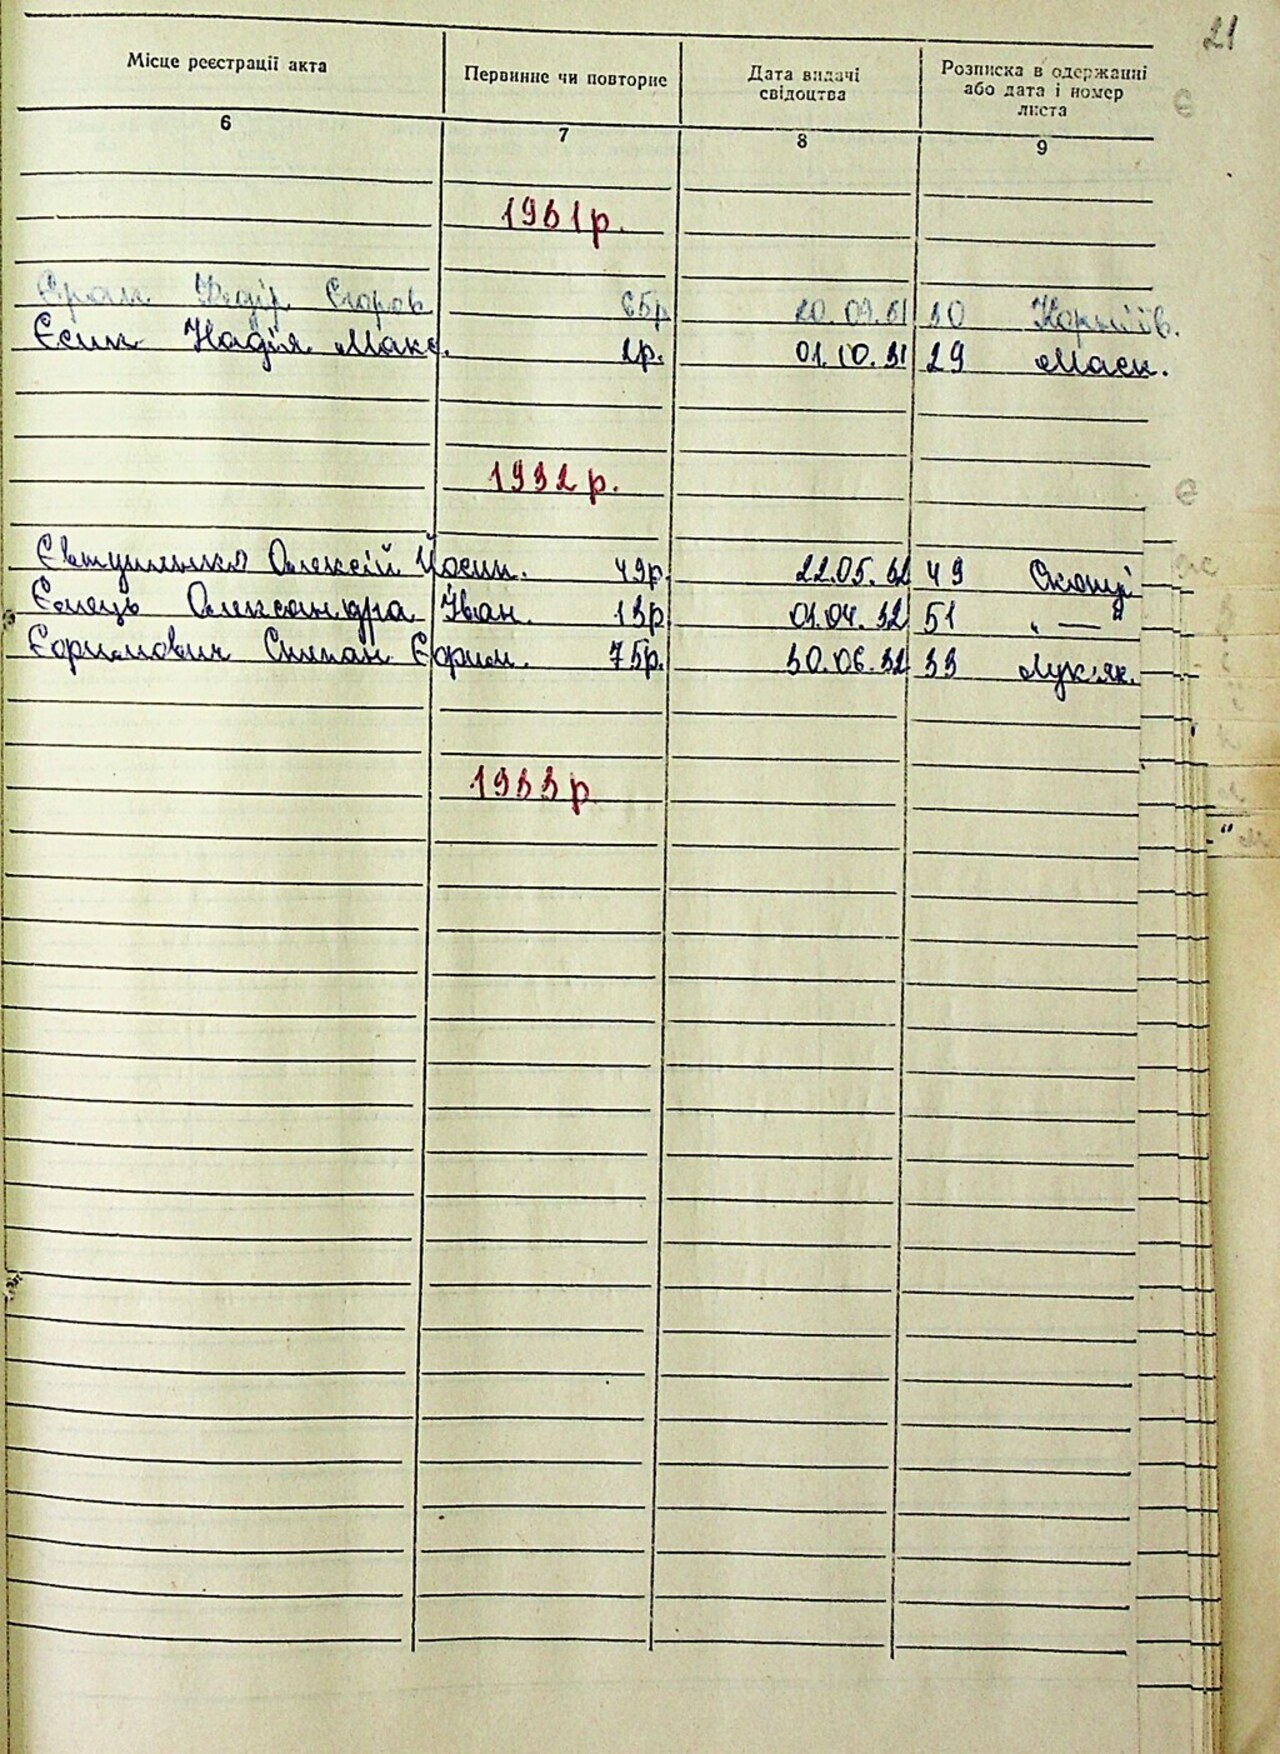 21
Місце реєстрації акта Первинне чи повторне Дата видачі свідоцтва Розписка в одержанні або дата і номер листа
6 7 8 9
1931р.
Єрак Федір Єгоров 65р 20.09.31 30 Корніїв.
Єсик Надія Макс. 2р. 01.10.31 29 Маєн.
1932 р.
Євтушенко Олексій Йосип. 49р. 22.05.32 49 Скопці
Ємець Олександра Іван. 13р 01.04.32 51 „ — "
Єфимович Степан Єфим. 75р. 30.06.32 33 Лук'ян.
1933р.